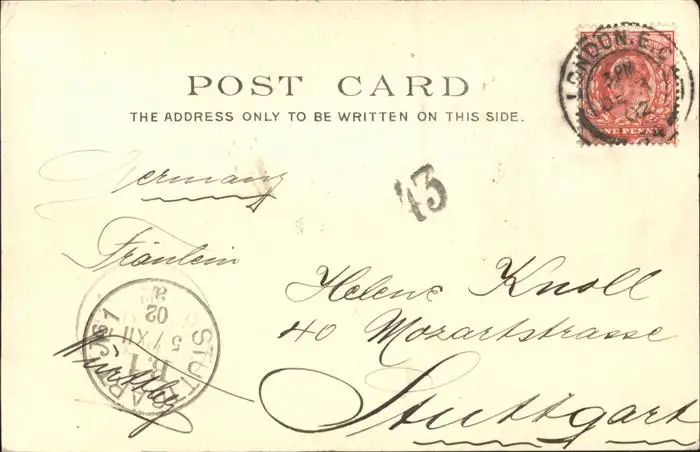 POST CARD
THE ADDRESS ONLY TO BE WRITTEN ON THIS SIDE.
LONDON. E.C.
3 PM
DE
02
ONE PENNY
Germany
43
Fräulein
Helene Knoll
40 Mozartstrasse
Stuttgart
Württbg
STUTT
B.1
5 / XII
02